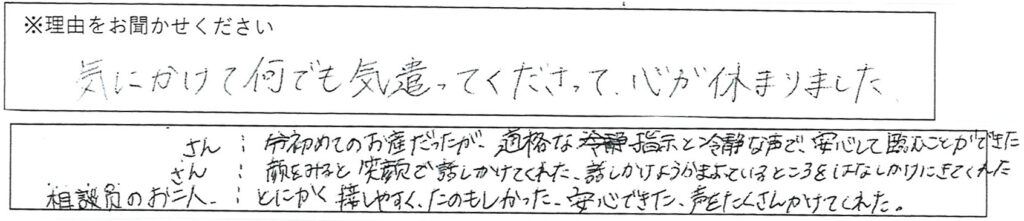 ※理由をお聞かせください
気にかけて何でも気遣ってくださって、心が休まりました。
さん：初めてのお産だったが、適格な指示と冷静な声で、安心して臨むことができた
さん：顔をみると笑顔で話しかけてくれた、話しかけようかまよっているところをはなしかけにきてくれた
相談員のお二人：とにかく接しやすく、たのもしかった、安心できた、声をたくさんかけてくれた。